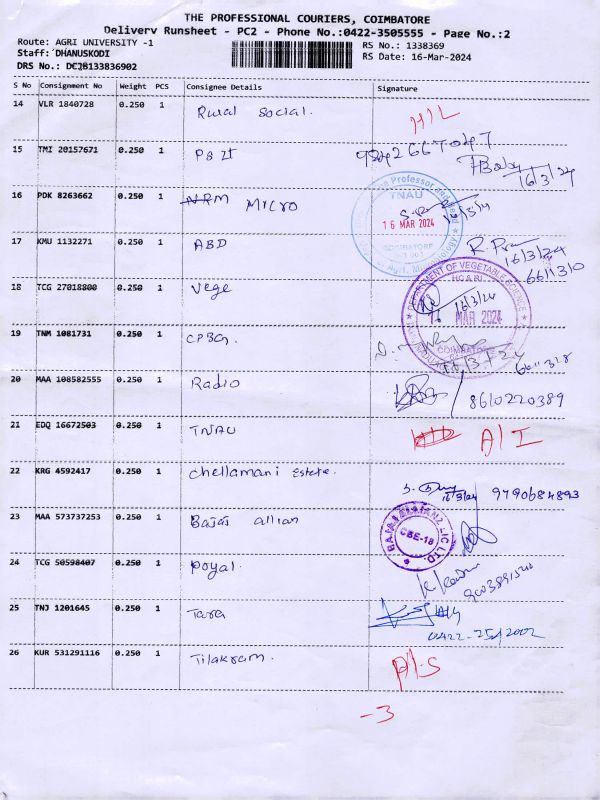 THE PROFESSIONAL COURIERS, COIMBATORE
Delivery Runsheet - PC2 - Phone No.:0422-3505555 - Page No.:2
Route: AGRI UNIVERSITY -1
RS No.: 1338369
Staff: DHANUSKODI
RS Date: 16-Mar-2024
DRS No.:
S No Consignment No Weight PCS Consignee Details Signature
14 VLR 1840728 0.250 1 Rural Social. H/L
15 TMI 20157671 0.250 1 16/3/24
16 PDK 8263662 0.250 1 NRM MICRO
TNAU
16 MAR 2024
COIMBATORE
17 KMU 1132271 0.250 1 ABD 16/3/24
661130
18 TCG 27018800 0.250 1 Vege 16/3/24
DEPARTMENT OF VEGETABLE SCIENCE
MAR 2024
COIMBATORE
19 TNM 1081731 0.250 1
6611318
20 MAA 108582555 0.250 1 Radio 8610220389
21 EDQ 16672503 0.250 1 TNAU A/I
22 KRG 4592417 0.250 1 Chellamani Estate. 16/3/24 9790684893
23 MAA 573737253 0.250 1 Bajaj allian
CBE-18
24 TCG 50598407 0.250 1 Poyal.
25 TNJ 1201645 0.250 1 Tara
26 KUR 531291116 0.250 1 Tilakram. A/S
-3